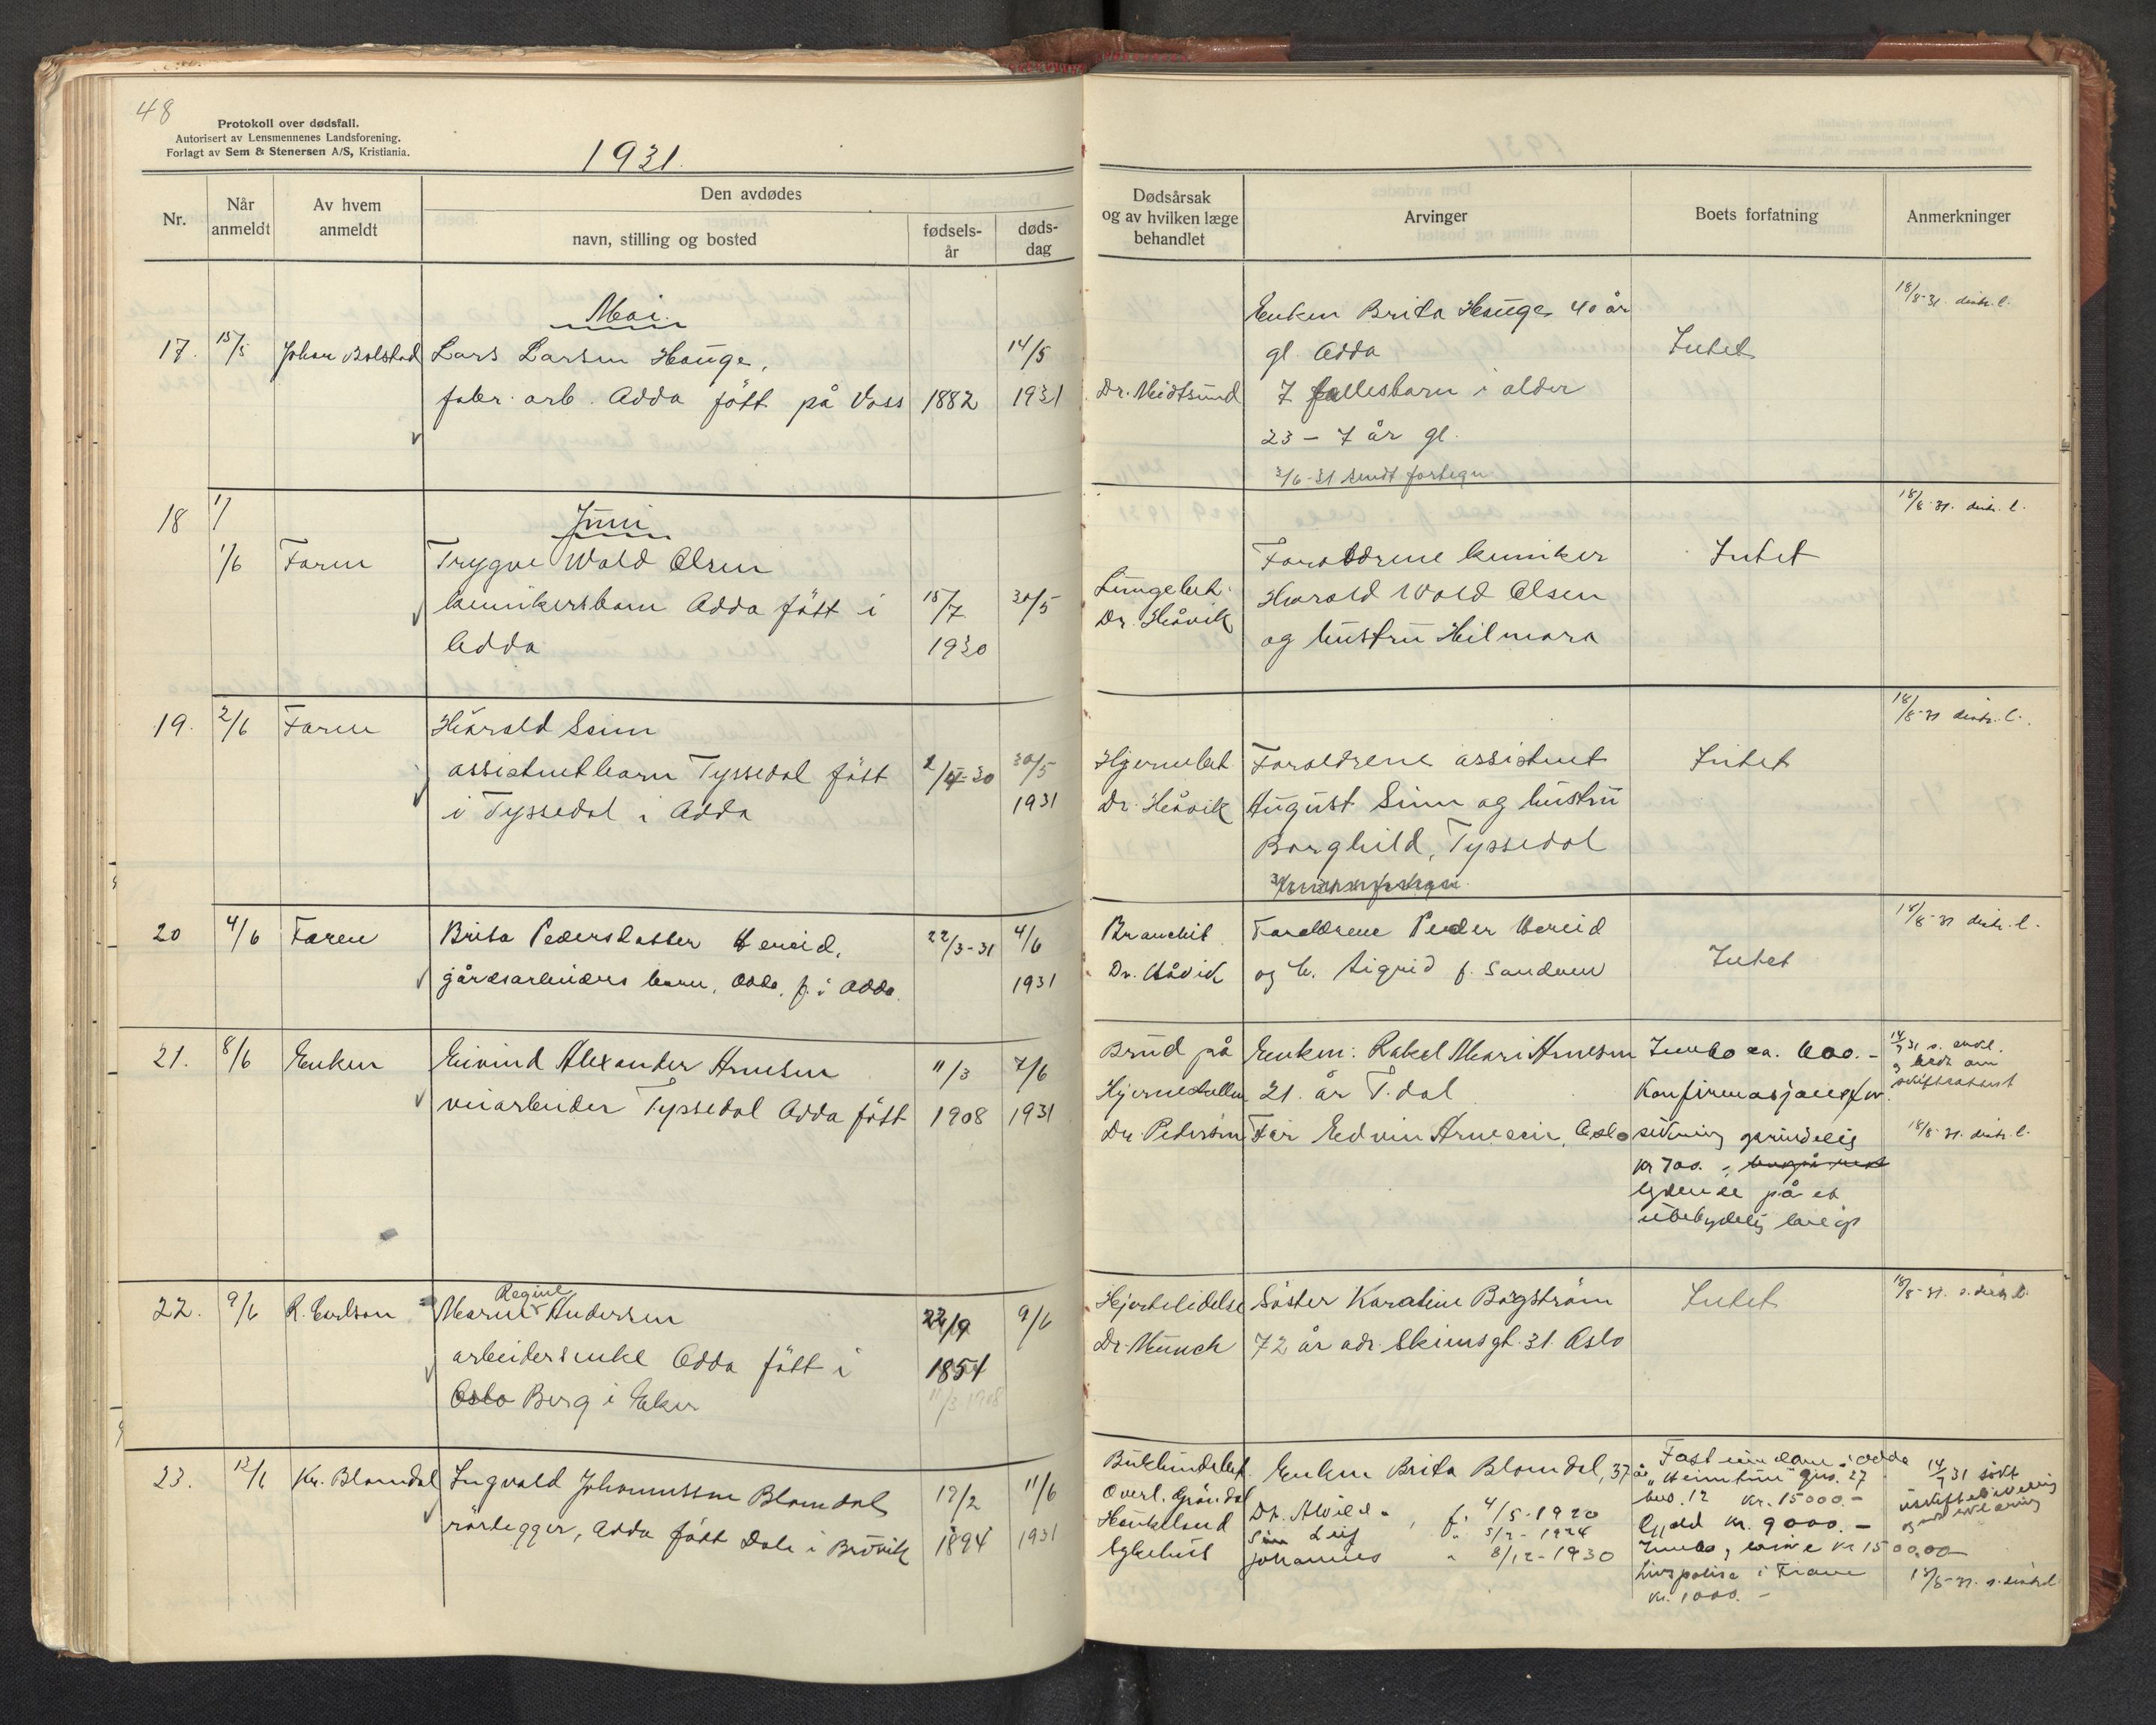 48
Protokoll over dødsfall.
Autorisert av Lensmennenes Landsforening.
Forlagt av Sem & Stenersen A/S, Kristiania.
1931.
Nr.
Når anmeldt
Av hvem anmeldt
Den avdødes
navn, stilling og bosted
fødsels-år
døds-dag
Dødsårsak og av hvilken læge behandlet
Arvinger
Boets forfatning
Anmerkninger
Mai.
17. 15/5 Johan Bolstad Lars Larsen Hauge, 14/5
fabr. arb. Odda fött på Voss 1882 1931
Dr. Meidtsund
Enken Brita Hauge 40 år
gl. Odda
7 fellesbarn i alder
23 – 7 år gl.
3/6-31 sendt fortegn
Intet
18/8-31. distr. l.
18 1/
Juni
1/6 Faren Trygve Wold Olsen
kemikersbarn Odda fött i 15/7 30/5
Odda 1930
Lungebet.
Dr. Håvik
Foreldrene kemiker
Harald Wold Olsen
og hustru Hilmara
Intet
18/8-31. distr. l.
19. 2/6 Faren Harald Seim
assistentbarn Tyssedal fött 30/5
i Tyssedal i Odda 1931
Hjernebet
Dr. Håvik
Foreldrene assistent
August Seim og hustru
Borghild, Tyssedal
Intet
18/8-31 distr. l.
20 4/6 Faren Brita Pedersdatter Vereid, 22/3-31 4/6
gårdsarbeiders barn, Odda, f. i Odda. 1931
Bronchit
Dr. Håvik
Foreldrene Peder Vereid
og h. Sigrid f. Sandven
Intet
18/8-31 distr. l.
21. 8/6 Enken Eivind Alexander Arnesen 11/3 7/6
veiarbeider Tyssedal Odda fött 1908 1931
Brud på
Hjerneskallen
Dr. Pedersen
Enken: Rakel Mari Arnesen
21. år T.dal
Far Edvin Arnesen, Oslo
Innbo ca. 600.-
Konfirmasjonsfor
sikring oprindelig
kr 700.-
lydende på et
ubetydelig beløp
14/7 31 s. enkl.
og bedt om
skifteattest
18/8-31. distr. l.
22. 9/6 R. Carlson Regine
Maren Andersen 22/9 9/6
arbeidersenke Odda fött i 1854
Oslo Berg i Eker
11/3 1908
Hjertelidelse
Dr. Munch
Söster Karoline Bøgström
72 år adr. Skimsgt. 31. Oslo
Intet
18/8-31. s. distr. l.
23. 12/6 Kr. Blomdal Ingvald Johannessen Blomdal 19/2 11/6
rörlegger, Odda fött Dale i Bruvik 1894 1931
Overl. Gröndal
Haukeland
Sykehus
Enken Brita Blomdal, 37 år
Dt. Alvild f. 4/5-1920
Leif
Johannes " 8/12-1930
Fast eiendom i Odda
"Heimtun" gnr. 27
bno. 12 kr. 15000.-
Gjeld kr. 9000.-
Innbo, lösöre kr 1500,00
Livspolise i Fram
kr. 1000.-
14/7 31 sökt
18/8-31. s. distr. l